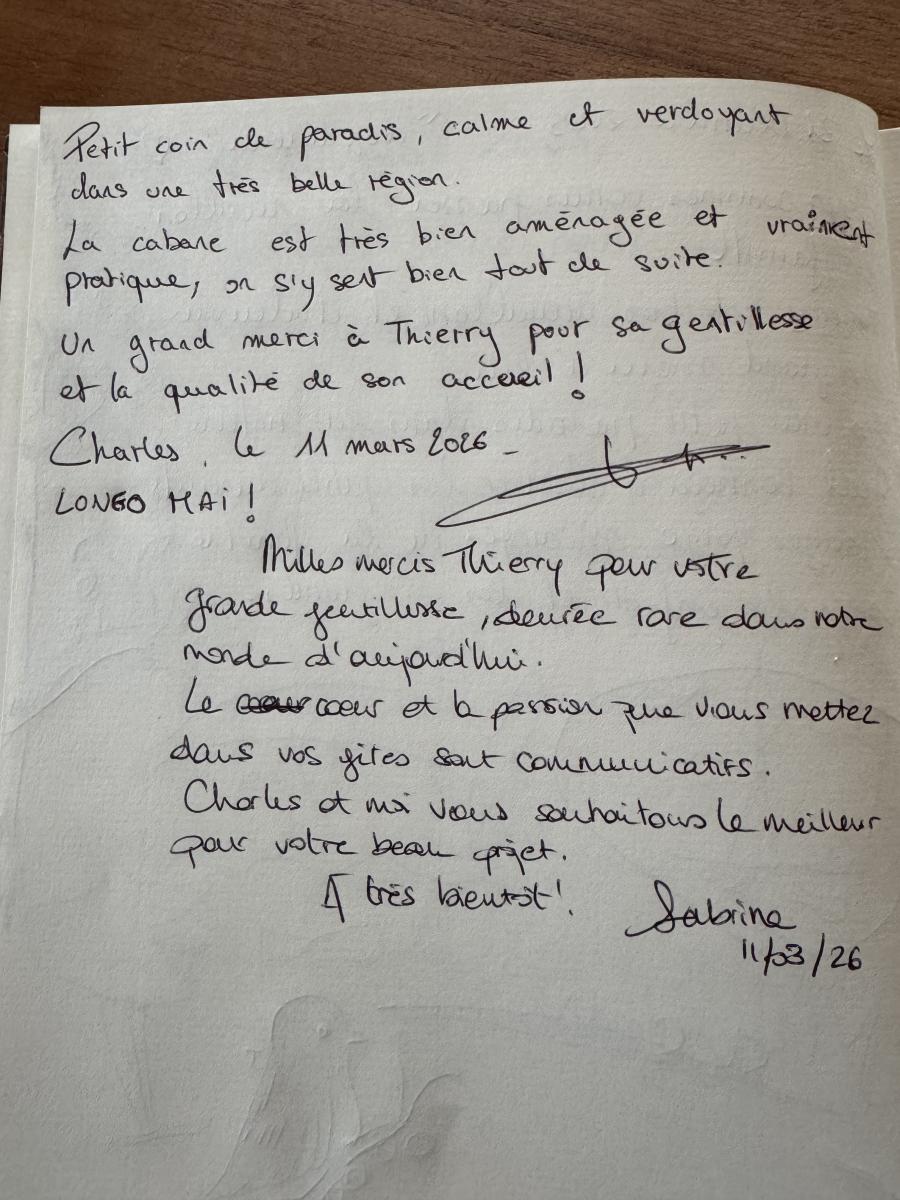 Petit coin de paradis, calme et verdoyant
dans une très belle région.
La cabane est très bien aménagée et vraiment
pratique, on s'y sent bien tout de suite.
Un grand merci à Thierry pour sa gentillesse
et la qualité de son accueil !
Charles, le 11 mars 2026 -
LONGO MAi !
Milles mercis Thierry pour votre
grande gentillesse, denrée rare dans notre
monde d'aujourd'hui.
Le coeur et la passion que vous mettez
dans vos gites sont communicatifs.
Charles et moi vous souhaitons le meilleur
pour votre beau projet.
A très bientôt !
Sabrina
11/03/26